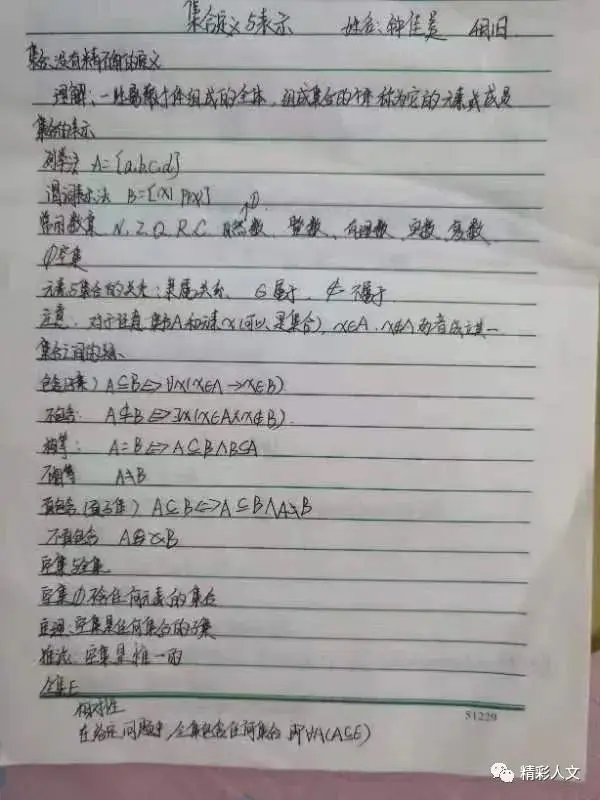 集合定义与表示 姓名:钟佳美
集合没有精确的定义
理解:一些离散个体组成的全体,组成集合的个体称为它的元素或成员
集合的表示
列举法 A={a,b,c,d}
谓词表示法 B={x| P(x)}
常用数集 N, Z, Q, R, C 自然数、整数、有理数、实数、复数
∅空集
元素与集合的关系:隶属关系 ∈属于,∉不属于
注意:对于任意集合A和元素x(可以是集合),x∈A,x∉A两者成立其一
集合之间的关系
包含(子集) A⊆B⇔∀x(x∈A→x∈B)
不包含: A⊈B⇔∃x(x∈A∧x∉B)
相等: A=B⇔A⊆B∧B⊆A
不相等 A≠B
真包含(真子集) A⊂B⇔A⊆B∧A≠B
不真包含 A⊄B
空集与全集
空集∅不含任何元素的集合
定理:空集是任何集合的子集
推论 空集是唯一的
全集E
相对性
在给定问题中,全集包含任何集合 即∀A(A⊆E)
51229
精彩人文